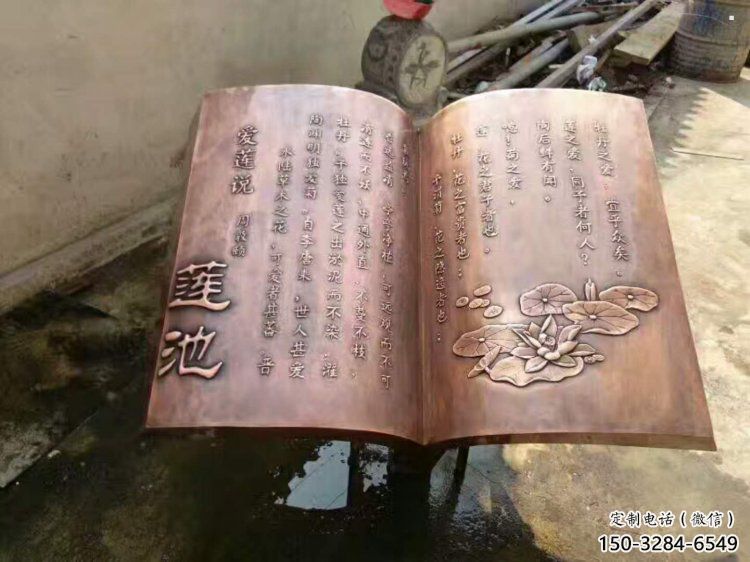 爱莲说
周敦颐
莲池
水陆草木之花,可爱者甚蕃,
陶渊明独爱菊。自李唐来,世人甚爱
牡丹。予独爱莲之出淤泥而不染,濯
清涟而不妖,中通外直,不蔓不枝,
香远益清,亭亭净植,可远观而不可
予谓菊,花之隐逸者也;
牡丹,花之富贵者也;
莲,花之君子者也。
噫!菊之爱,
陶后鲜有闻。
莲之爱,同予者何人?
牡丹之爱,宜乎众矣。
定制电话(微信)
150-3284-6549